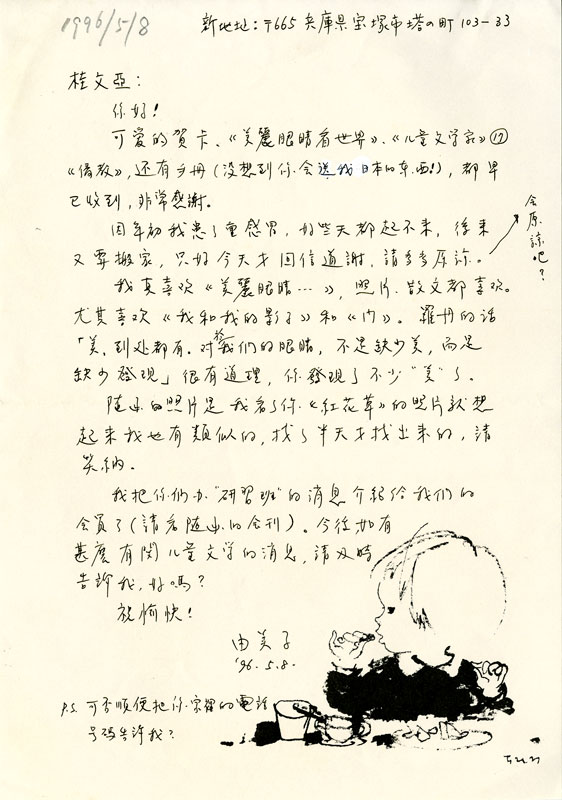 1996/5/8
新地址：〒665 兵庫県宝塚市塔の町 103-33
桂文亞：
你好！
可爱的賀卡、《美麗眼睛看世界》、《儿童文学家》⑰
《借教》，还有手册（没想到你会送我日本的东西！），都早
已收到，非常感謝。
因年初我患了重感冒，好些天都起不来，後来
又要搬家，只好今天才回信道謝，請多多原諒。
会原諒吧？
我真喜欢《美麗眼睛…》，照片、散文都喜欢。
尤其喜欢《我和我的影子》和《门》。羅丹的话
「美，到处都有。对於我们的眼睛，不是缺少美，而是
缺少發现」很有道理，你發现了不少"美"了。
随函的照片是我看了你《紅花草》的照片就想
起来我也有類似的，找了半天才找出来的，請
笑納。
我把你们办"研習班"的消息介紹给我们的
会員了（請看随函的会刊）。今後如有
甚麽有関儿童文学的消息，請及時
告訴我，好嗎？
祝愉快！
由美子
'96.5.8.
P.S. 可否順便把你家裡的電話
号碼告訴我？